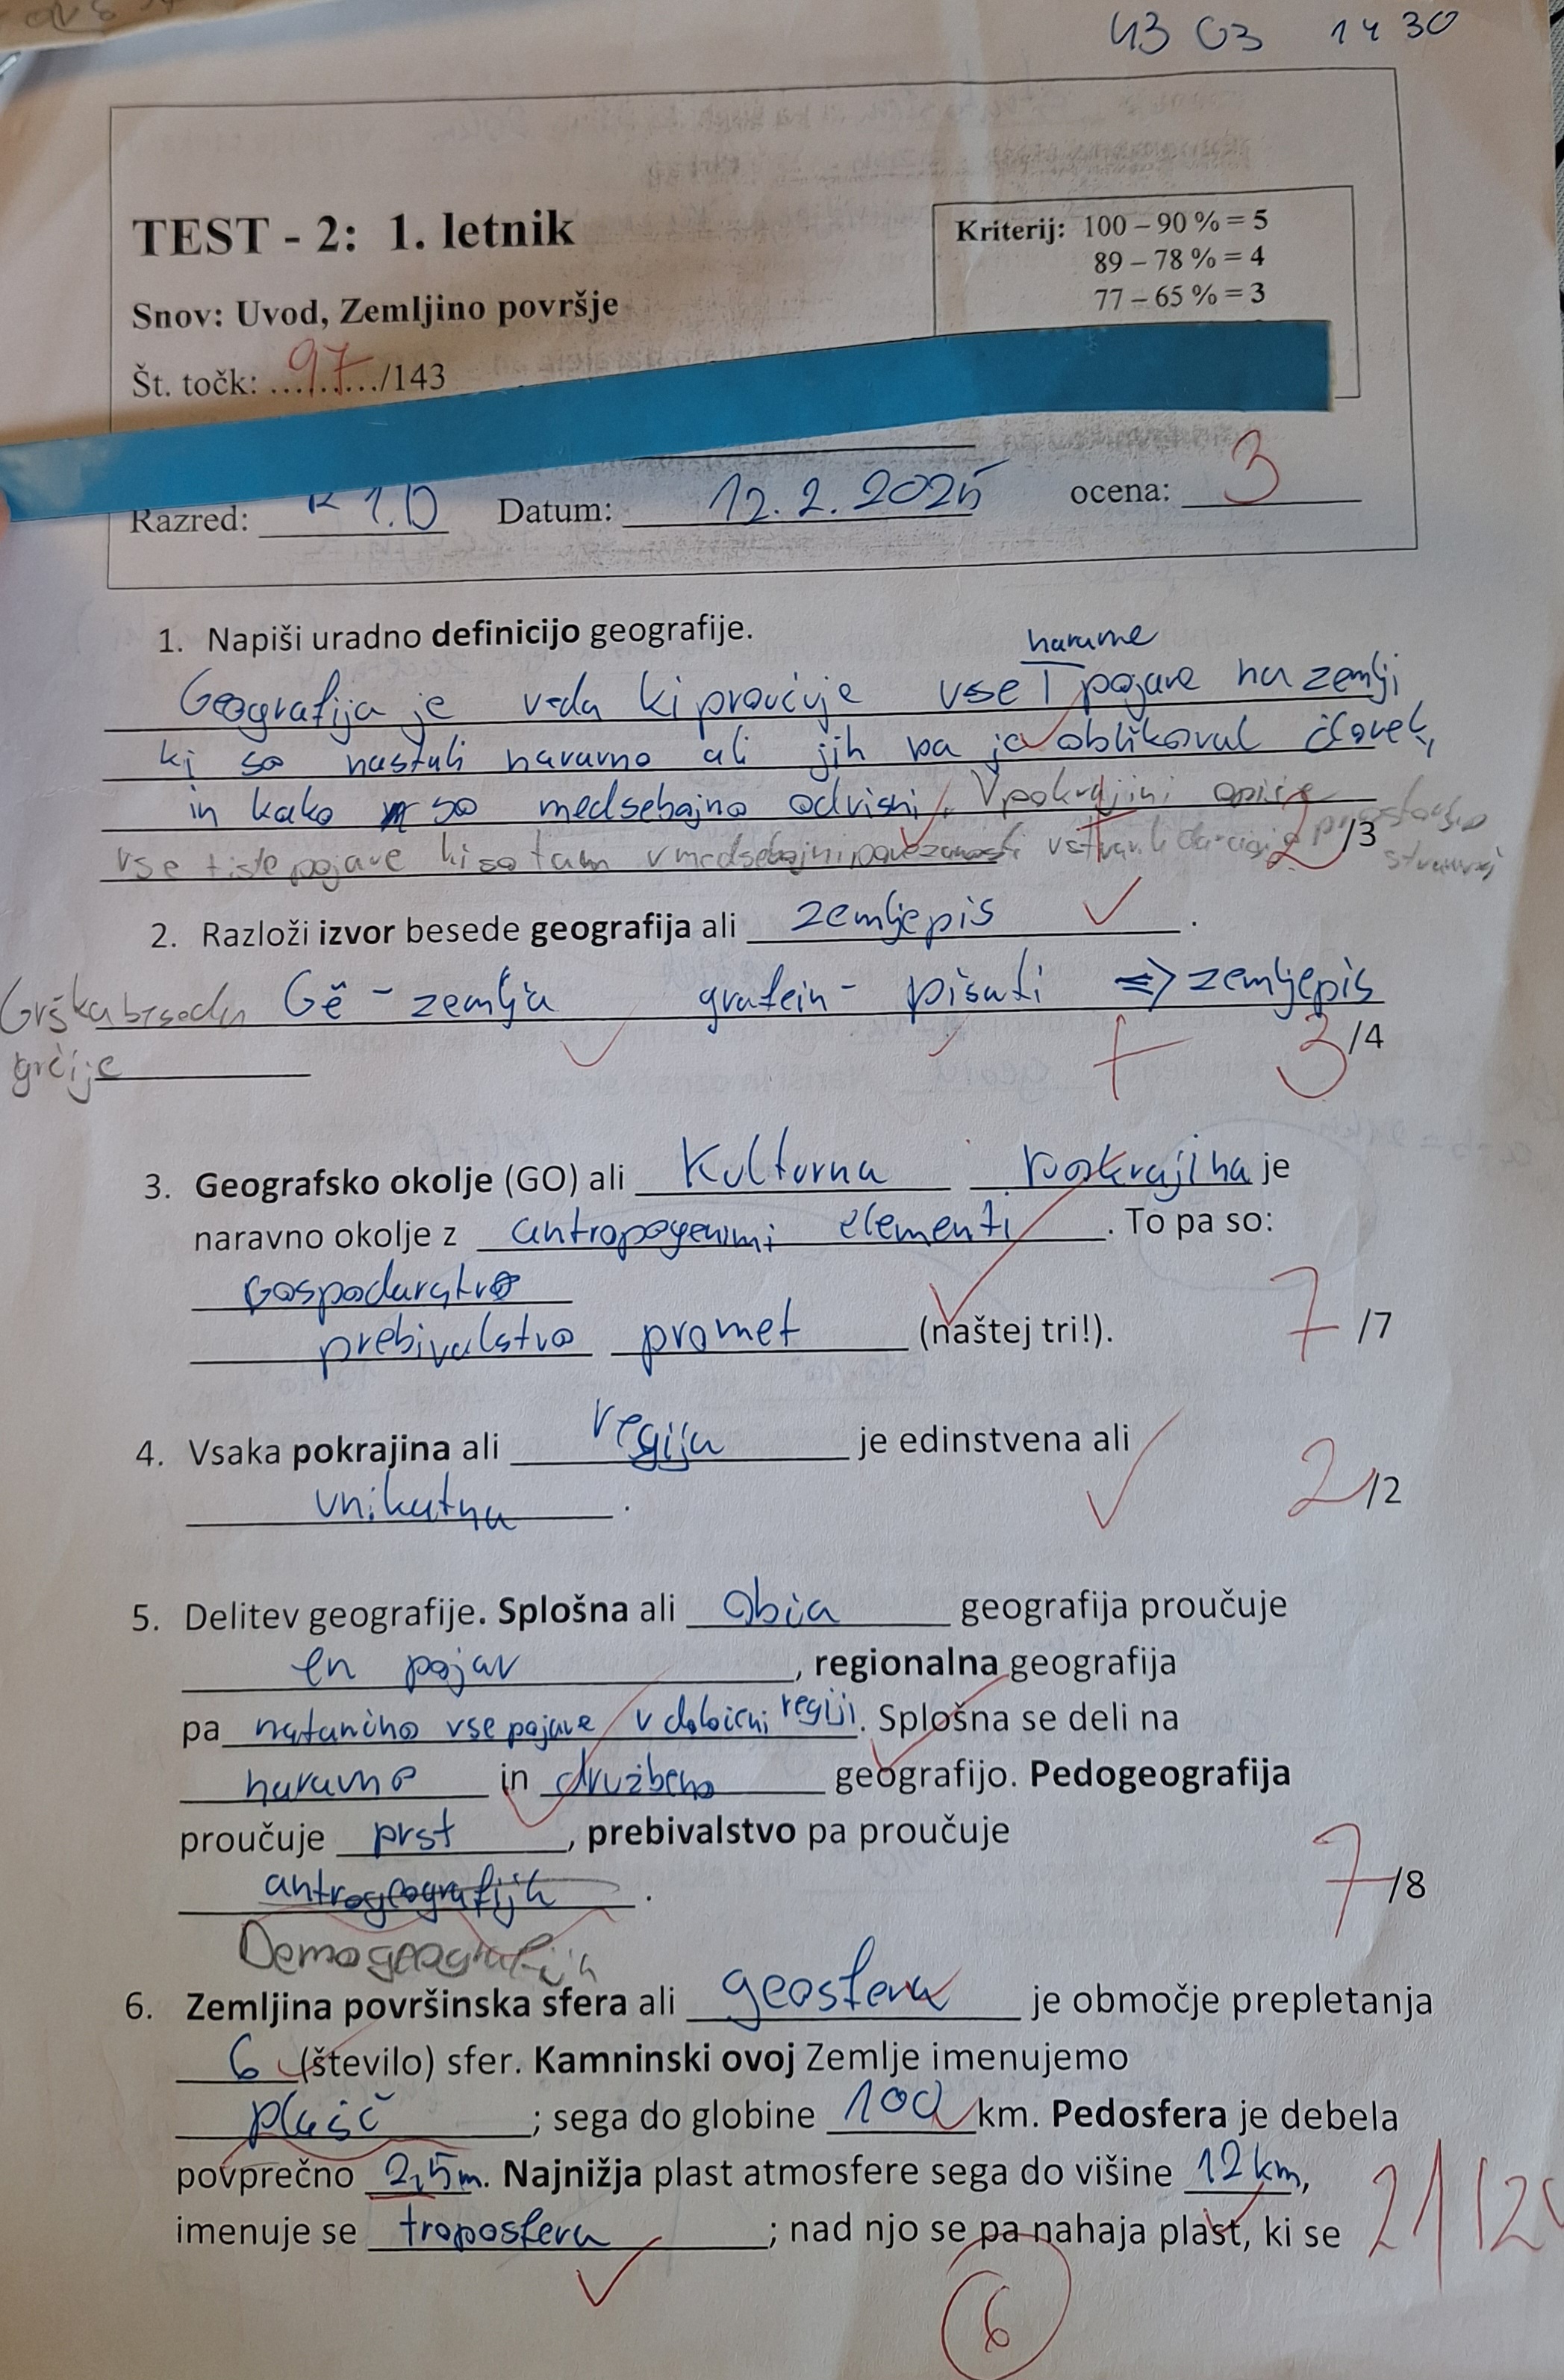 43 03 14 30
TEST - 2: 1. letnik
Kriterij: 100 – 90 % = 5
89 – 78 % = 4
77 – 65 % = 3
Snov: Uvod, Zemljino površje
Št. točk: 97/143
Razred: R 1.D Datum: 12. 2. 2025 ocena: 3
1. Napiši uradno definicijo geografije.
naravne
Geografija je veda ki proučuje vse pojave na zemlji
ki so nastali naravno ali jih pa je oblikoval človek,
in kako so medsebojno odvisni. V pokrajini opiše
vse tiste pojave ki so tam v medsebojni povezanosti
2/3
2. Razloži izvor besede geografija ali zemljepis.
Grška beseda Gē - zemlja grafein - pisati => zemljepis
grčije
3/4
3. Geografsko okolje (GO) ali Kulturna pokrajina je
naravno okolje z antropogenimi elementi. To pa so:
Gospodarstvo
prebivalstvo promet (naštej tri!). 7/7
4. Vsaka pokrajina ali regija je edinstvena ali
unikatna. 2/2
5. Delitev geografije. Splošna ali obča geografija proučuje
en pojav, regionalna geografija
pa natančno vse pojave v določeni regiji. Splošna se deli na
naravno in družbeno geografijo. Pedogeografija
proučuje prst, prebivalstvo pa proučuje
antrogeografija. 7/8
Demogeografija
6. Zemljina površinska sfera ali geosfera je območje prepletanja
6 (število) sfer. Kamninski ovoj Zemlje imenujemo
plašč; sega do globine 100 km. Pedosfera je debela
povprečno 2,5m. Najnižja plast atmosfere sega do višine 12 km,
imenuje se troposfera; nad njo se pa nahaja plast, ki se
6